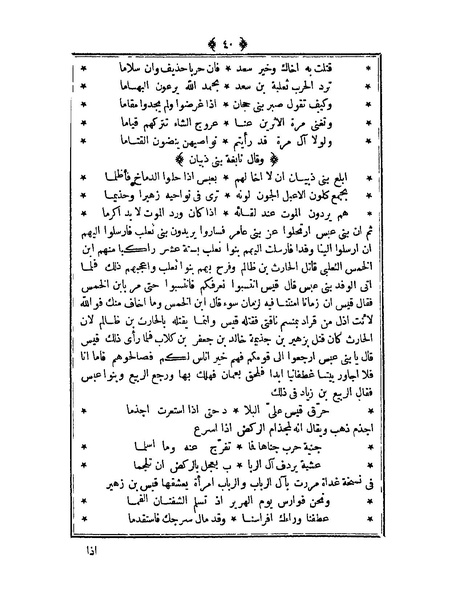 ﴿ ٤٠ ﴾
* قتلت به اخاك وخير سعد * فان حربا حذيف وان سلاما *
* ترد الحرب ثعلبة بن سعد * بحمد الله يرعون البهاما *
* وكيف تقول صبر بنى حجان * اذا غرضوا ولم يجدوا مقاما *
* وتغنى مرة الاثرين عنا * عروج الشاء تتركهم قياما *
* ولولا آل مرة قد رأيتم * نواصيهن ينضون القتاما *
﴿ وقال نابغة بنى ذبيان ﴾
* ابلغ بنى ذبيان ان لا اخا لهم * بعبس اذا حلوا الدماخ فأظلما *
* بجمع كلون الاعبل الجون لونه * ترى فى نواحيه زهيرا وحذيما *
* هم يردون الموت عند لقائه * اذا كان ورد الموت لا بد اكرما *
ثم ان بنى عبس ارتحلوا عن بنى عامر فساروا يريدون بنى تغلب فارسلوا اليهم
ان ارسلوا الينا وفدا فارسلت اليهم بنوا تغلب بستة عشر راكبا منهم ابن
الخمس التغلبى قاتل الحارث بن ظالم وفرح بهم بنوا تغلب واعجبهم ذلك فلما
اتى الوفد بنى عبس قال قيس انتسبوا نعرفكم فانتسبوا حتى مر بابن الخمس
فقال قيس ان زمانا امنتنا فيه لزمان سوء قال ابن الخمس وما اخاف منك فوالله
لانت اذل من قراد بمنسم ناقتى فقتله قيس وانما يقتله بالحارث بن ظالم لان
الحارث كان قتل بزهير بن جذيمة خالد بن جعفر بن كلاب فلما رأى ذلك قيس
قال يا بنى عبس ارجعوا الى قومكم فهم خير اناس لكم فصالحوهم فاما انا
فلا اجاور بيتا غطفانيا ابدا فلحق بعمان فهلك بها ورجع الربيع وبنوا عبس
فقال الربيع بن زياد فى ذلك
* حرّق قيس علىّ البلا * د حتى اذا استعرت اجذما *
اجذم ذهب ويقال انه لمجذام الركض اذا اسرع
* جنية حرب جناها فما * تفرّج عنه وما اسلما *
* عشية يردف آل الربا * ب يعجل بالركض ان تلجما *
فى نسخة غداة مررت بآل الرباب والرباب امرأة يعشقها قيس بن زهير
* ونحن فوارس يوم الهرير * اذ تسلم الشفتان الفما *
* عطفنا وراءك افراسنا * وقد مال سرجك فاستقدما *
اذا